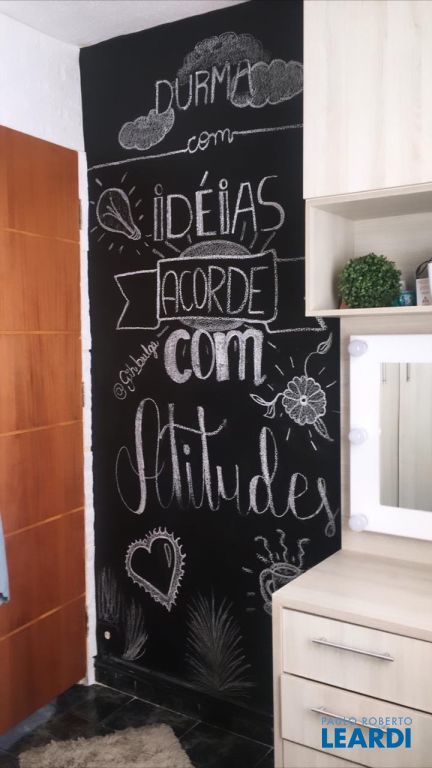 DURMA
com
IDÉIAS
ACORDE
COM
Atitudes
PAULO ROBERTO
LEARDI